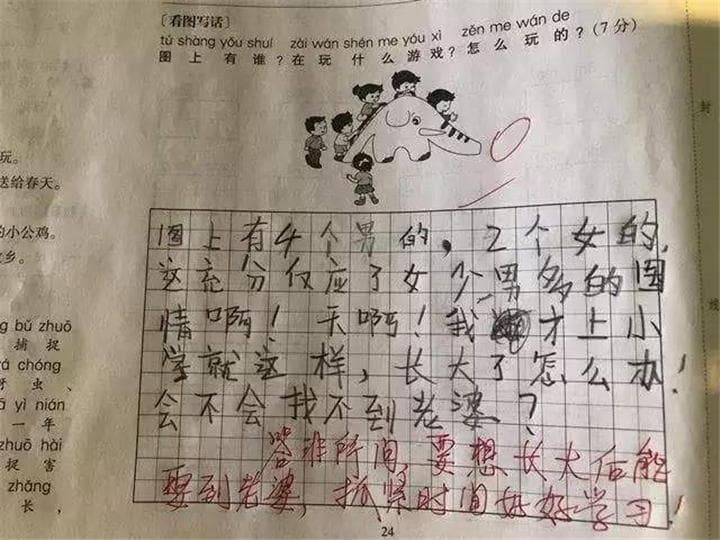 [看图写话]
tú shàng yǒu shuí zài wán shén me yóu xì zěn me wán de
图上有谁？在玩什么游戏？怎么玩的？(7分)
玩。
送给春天。
的小公鸡。
乡。
ng bǔ zhuō
捕捉
á chóng
虫、
á yì nián
一年
zhuō hài
捉害
zhǎng
长，
图上有4个男的，2个女的，
这充分仅应了女少男多的国
情啊！天啊！我才上小
学就这样，长大了怎么办！
会不会找不到老婆？
答非所问，要想长大后能
娶到老婆，抓紧时间好好学习！
24
封
线